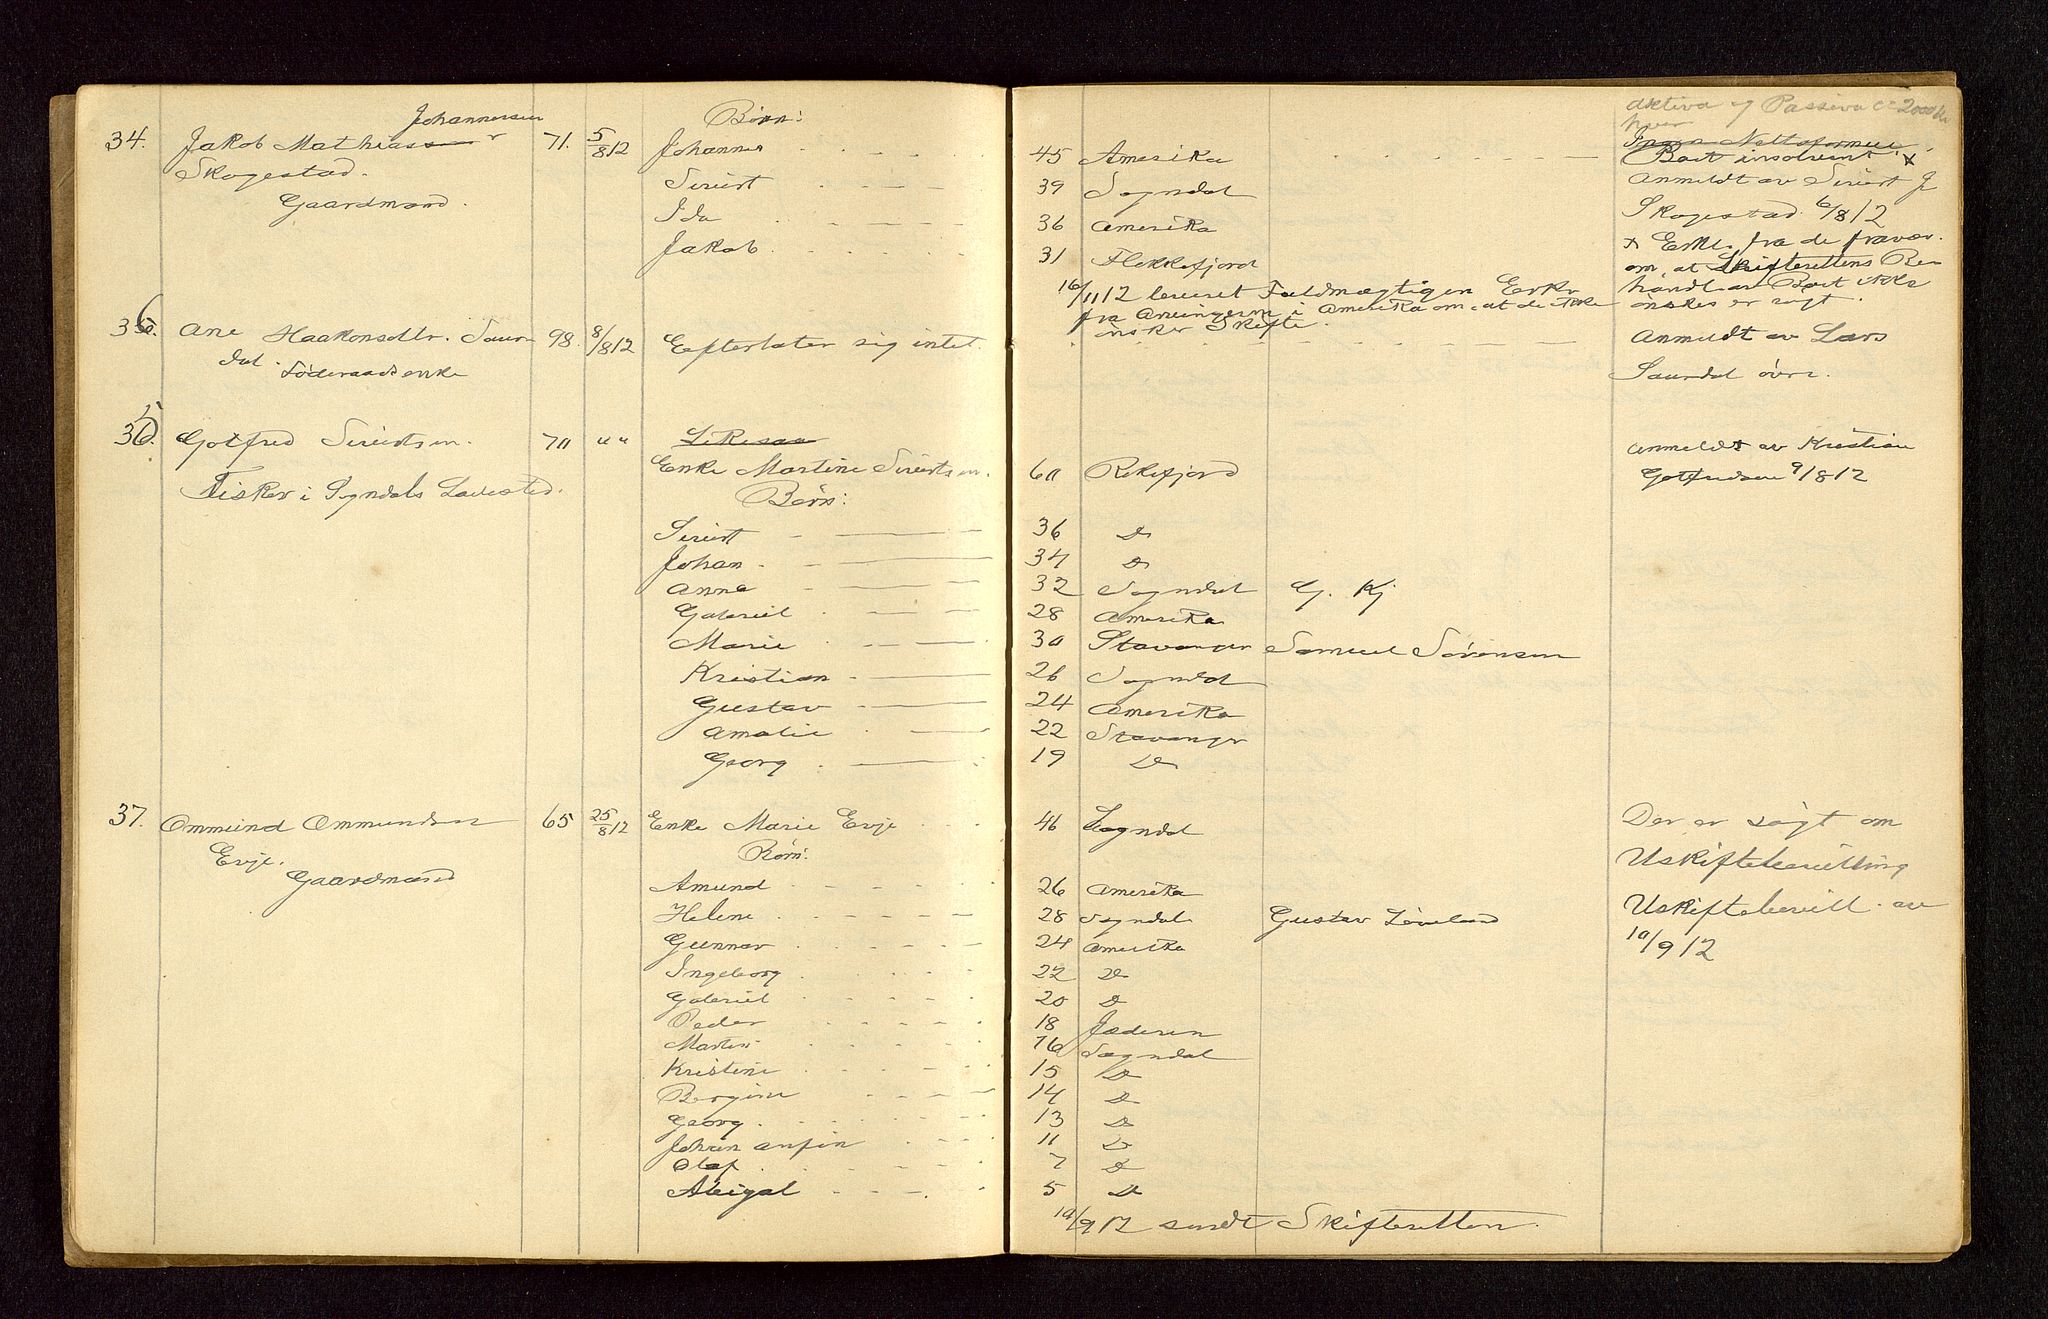 Johannessen Børn:
34. Jakob Mathias 71. 5/8 12 Johannes
Skogestad. Sivert
Gaardmand. Ida
Jakob
36. Ane Haakonsdtr. Saur- 98. 8/8 12 Efterlater sig intet.
dal. Föderaadsenke
35. Gotfred Sivertsen. 70 " " Likesaa
Enke Martine Sivertsen.
Fisker i Sogndals Ladested. Børn:
Sivert
Johan
Anna
Gabriel
Marie
Kristian
Gustav
Amalie
Georg
37. Ommund Ommundsen 65 25/8 12 Enke Marie Evje
Evje. Børn:
Gaardmand
Amund
Helene
Gunnar
Ingeborg
Gabriel
Peder
Martin
Kristine
Bergine
Georg
Johan Anfin
Olaf
Abigal
Aktiva og Passiva ca 2000 kr
hver
Ingen Nettoformue
45 Amerika Boet insolvent. x
39 Sogndal Anmeldt av Sivert J
36 Amerika Skogestad. 6/8 12
31 Flekkefjord x Erkl. fra de fravær.
om, at Skifterettens Be-
16/11 12 leveret Fuldmægtigen Erkl. handl. av Boet ikke
fra Arvingerne i Amerika om at de ikke ønskes er søgt.
ønsker Skifte.
Anmeldt av Lars
Saurdal övre.
Anmeldt av Kristian
60 Rekefjord Gotfredsen 9/8 12
36 Do
34 Do
32 Sogndal G. Kj
28 Amerika
30 Stavanger Samuel Sørensen
26 Sogndal
24 Amerika
22 Stavanger
19 Do
46 Sogndal Der er søgt om
Uskiftebevilling
26 Amerika
28 Sogndal Gustav Løvland Uskiftebevill. av
24 Amerika 10/9 12
22 Do
20 Do
18 Jæderen
16 Sogndal
15 Do
14 Do
13 Do
11 Do
7 Do
5 Do
10/9 12 sendt Skifteretten.